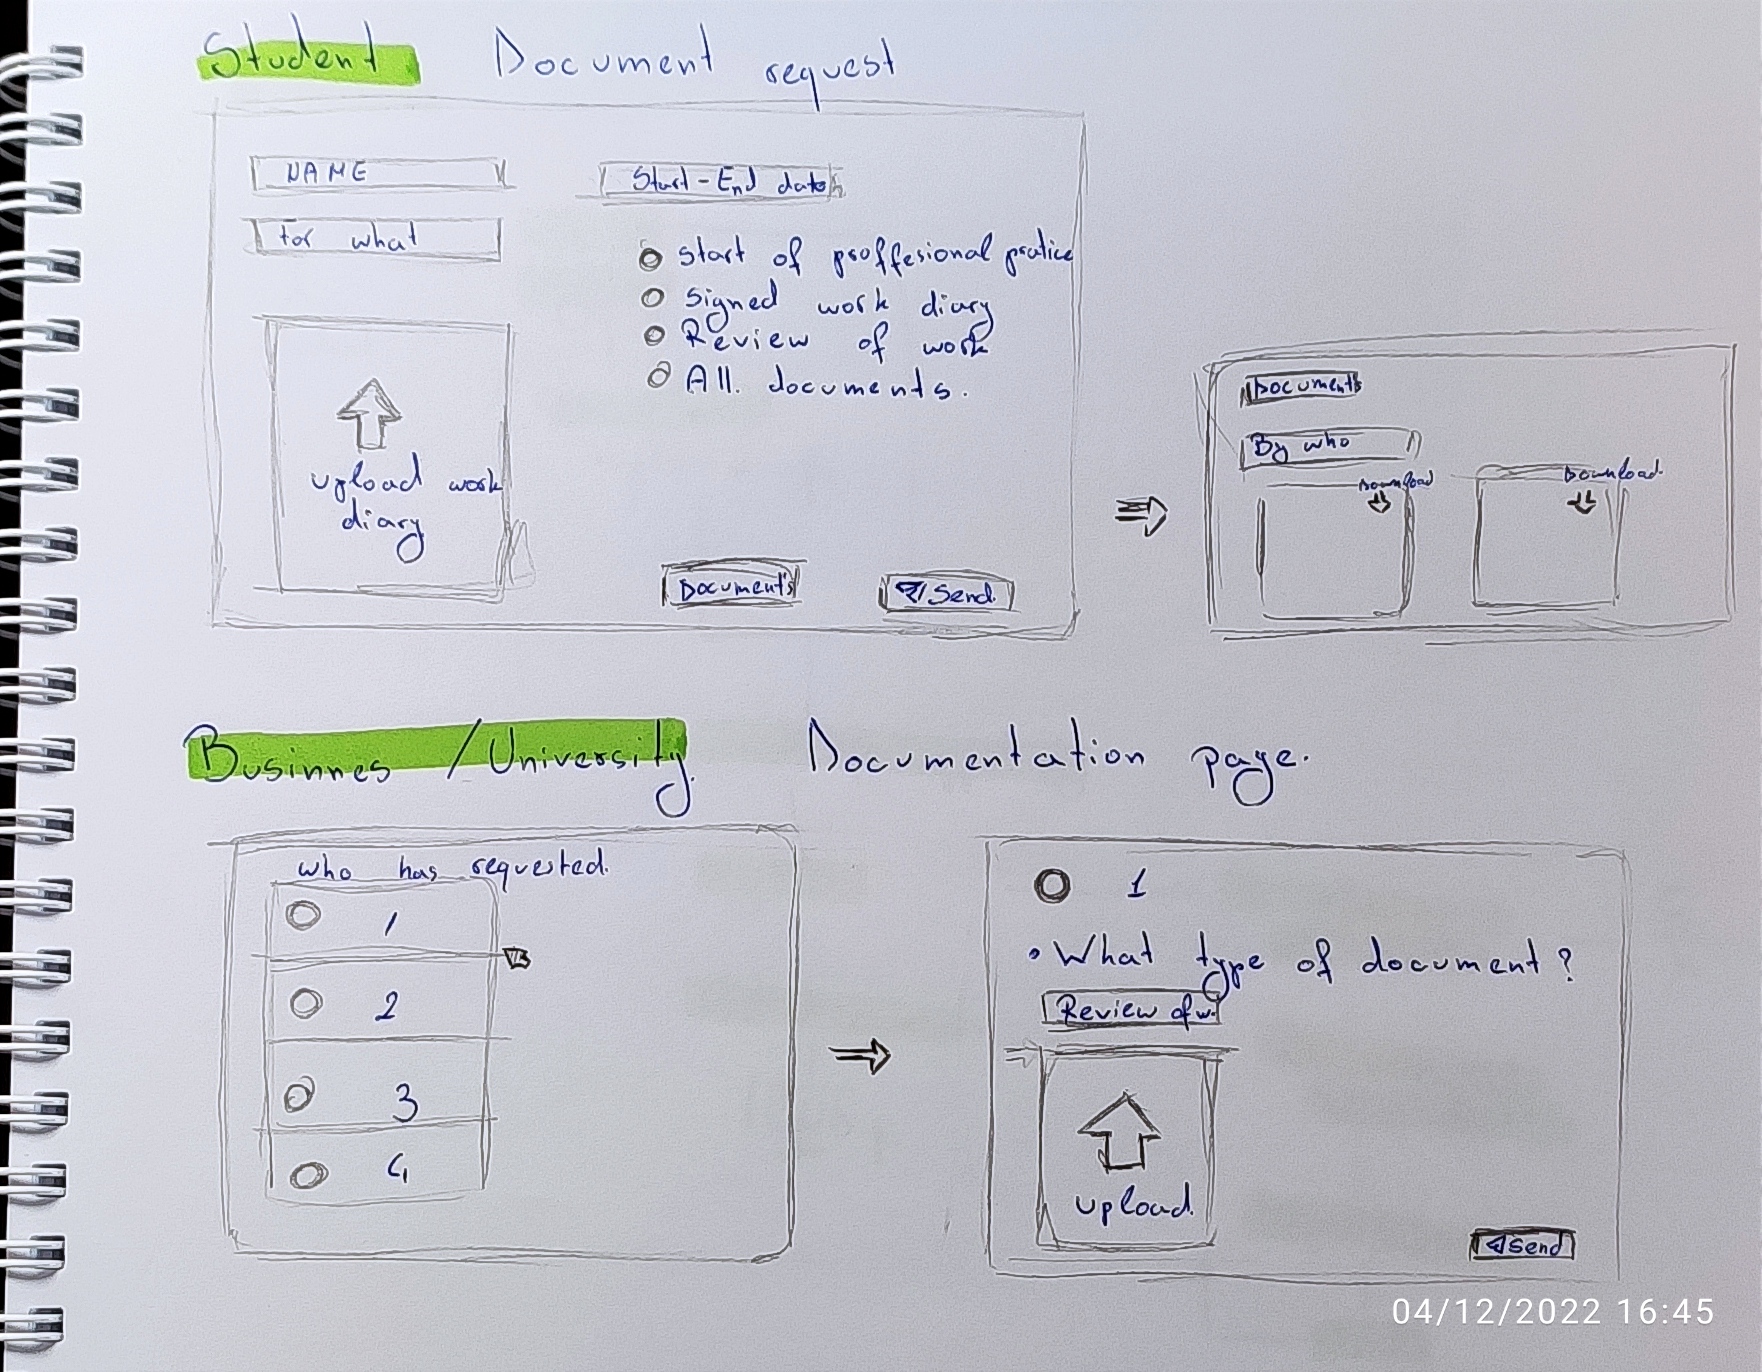 Student Document request
NAME
Start-End date
for what
start of proffesional pratice
signed work diary
Review of work
All. documents.
upload work
diary
Document's
Send
Document's
By who
Download
Download
Businnes / University. Documentation page.
who has requested.
1
2
3
4
1
• What type of document?
Review of w.
upload.
Send
04/12/2022 16:45